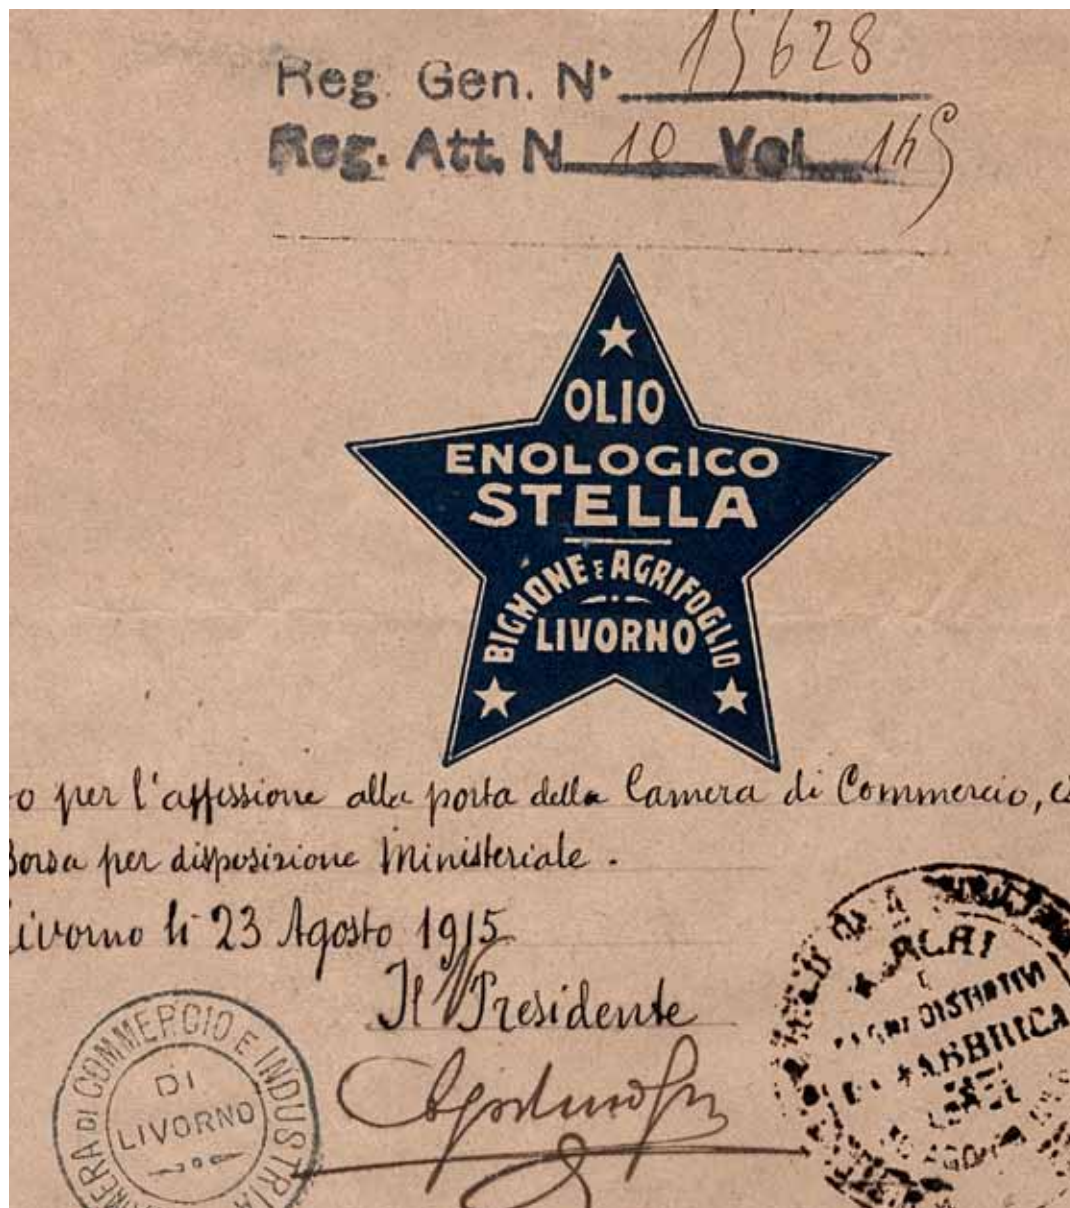 Reg. Gen. N° 15628
Reg. Att. N 10 Vol. 145
OLIO
ENOLOGICO
STELLA
BIGNONE E AGRIFOGLIO
LIVORNO
o per l'affissione alla porta della Camera di Commercio,
Borsa per disposizione Ministeriale.
Livorno li 23 Agosto 1915
Il Presidente
CAMERA DI COMMERCIO E INDUSTRIA
DI
LIVORNO
DISTINTIVI
DI FABBRICA